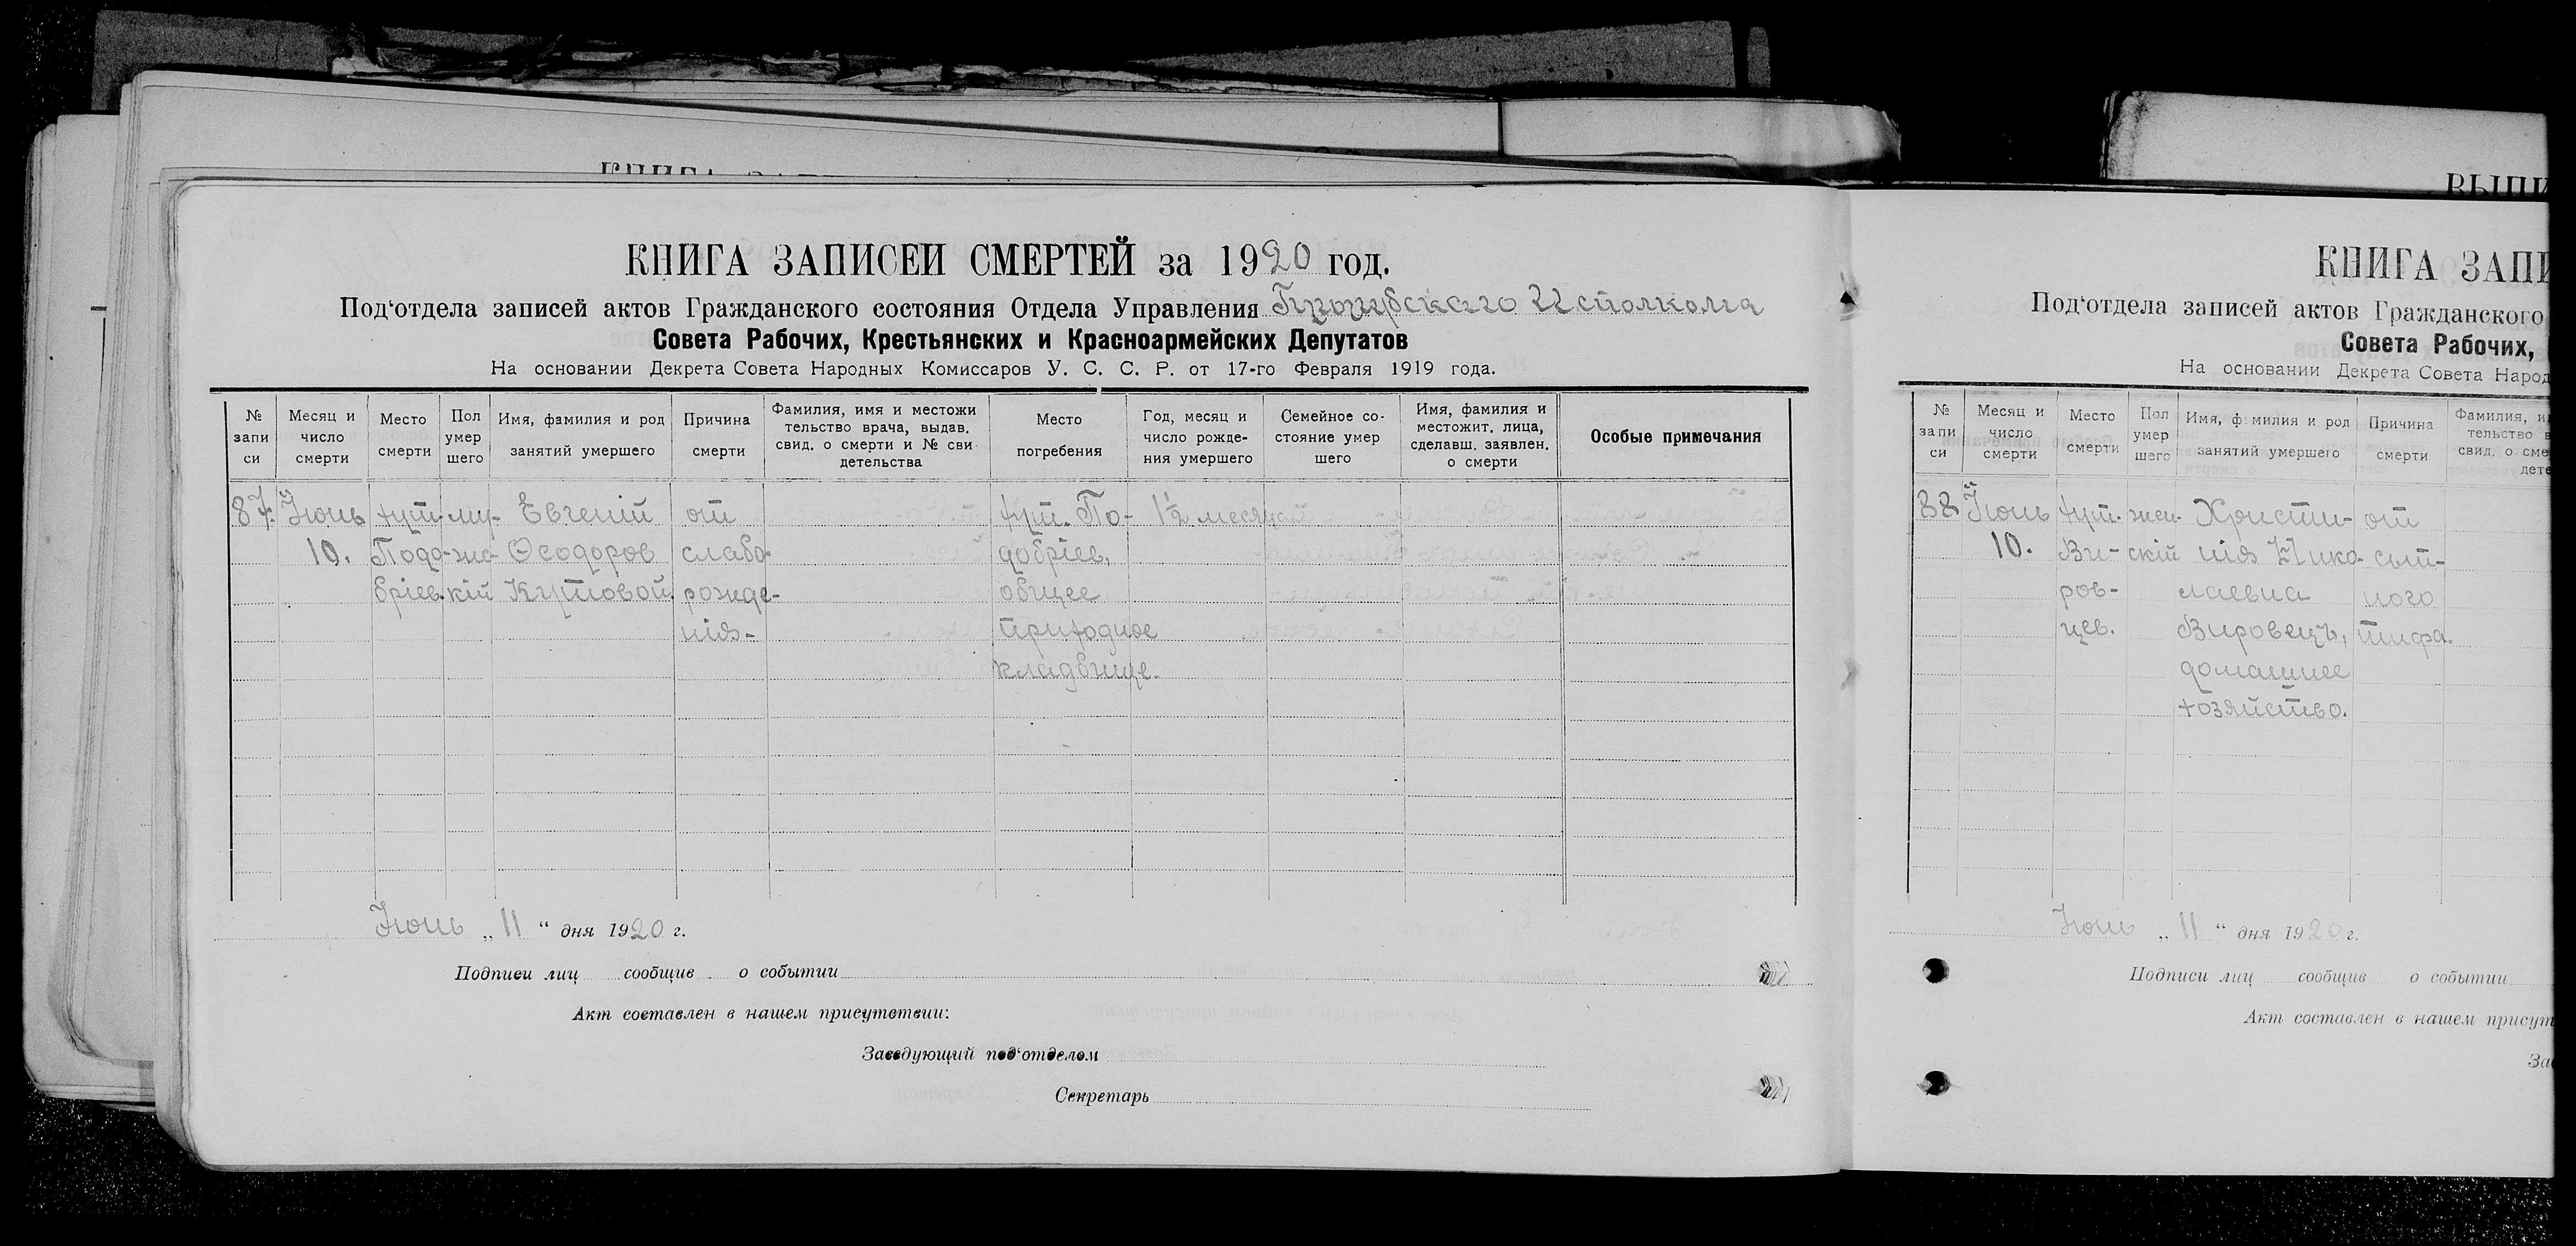 КНИГА ЗАПИСЕЙ СМЕРТЕЙ за 1920 год.
Под‘отдела записей актов Гражданского состояния Отдела Управления Исполкома
Совета Рабочих, Крестьянских и Красноармейских Депутатов
На основании Декрета Совета Народных Комиссаров У. С. С. Р. от 17-го Февраля 1919 года.
№ запи си
Месяц и число смерти
Место смерти
Пол умер шего
Имя, фамилия и род занятий умершего
Причина смерти
Фамилия, имя и местожи тельство врача, выдав. свид. о смерти и № сви детельства
Место погребения
Год, месяц и число рожде- ния умершего
Семейное со- стояние умер шего
Имя, фамилия и местожит. лица, сделавш. заявлен. о смерти
Особые примечания
87. Іюнь хут. му- Евгеній от хут. По- 1½ месяца
10. Подо- жс- Ѳеодоров слабо- добріев,
бріев. кій Кутовой. рожде- общее
нія- приходное
кладбище.
Іюнь „ 11 “ дня 1920 г.
Подписи лиц сообщив о событии
Акт составлен в нашем присутствии:
Заведующий под‘отделом
Секретарь
ВЫПИ
КНИГА ЗАПИ
Под‘отдела записей актов Гражданского
Совета Рабочих,
На основании Декрета Совета Народ
№ запи си
Месяц и число смерти
Место смерти
Пол умер шего
Имя, фамилия и род занятий умершего
Причина смерти
Фамилия, и
тельство в
свид. о сме
дете
88. Іюнь хут. жен- Христи- от
10. Ви- скій нія Нико- сып-
ров- лаевна ного
цев. Вировецъ, тифа.
домашнее
хозяйство.
Іюнь „ 11 “ дня 1920 г.
Подписи лиц сообщив о событии
Акт составлен в нашем присут
За